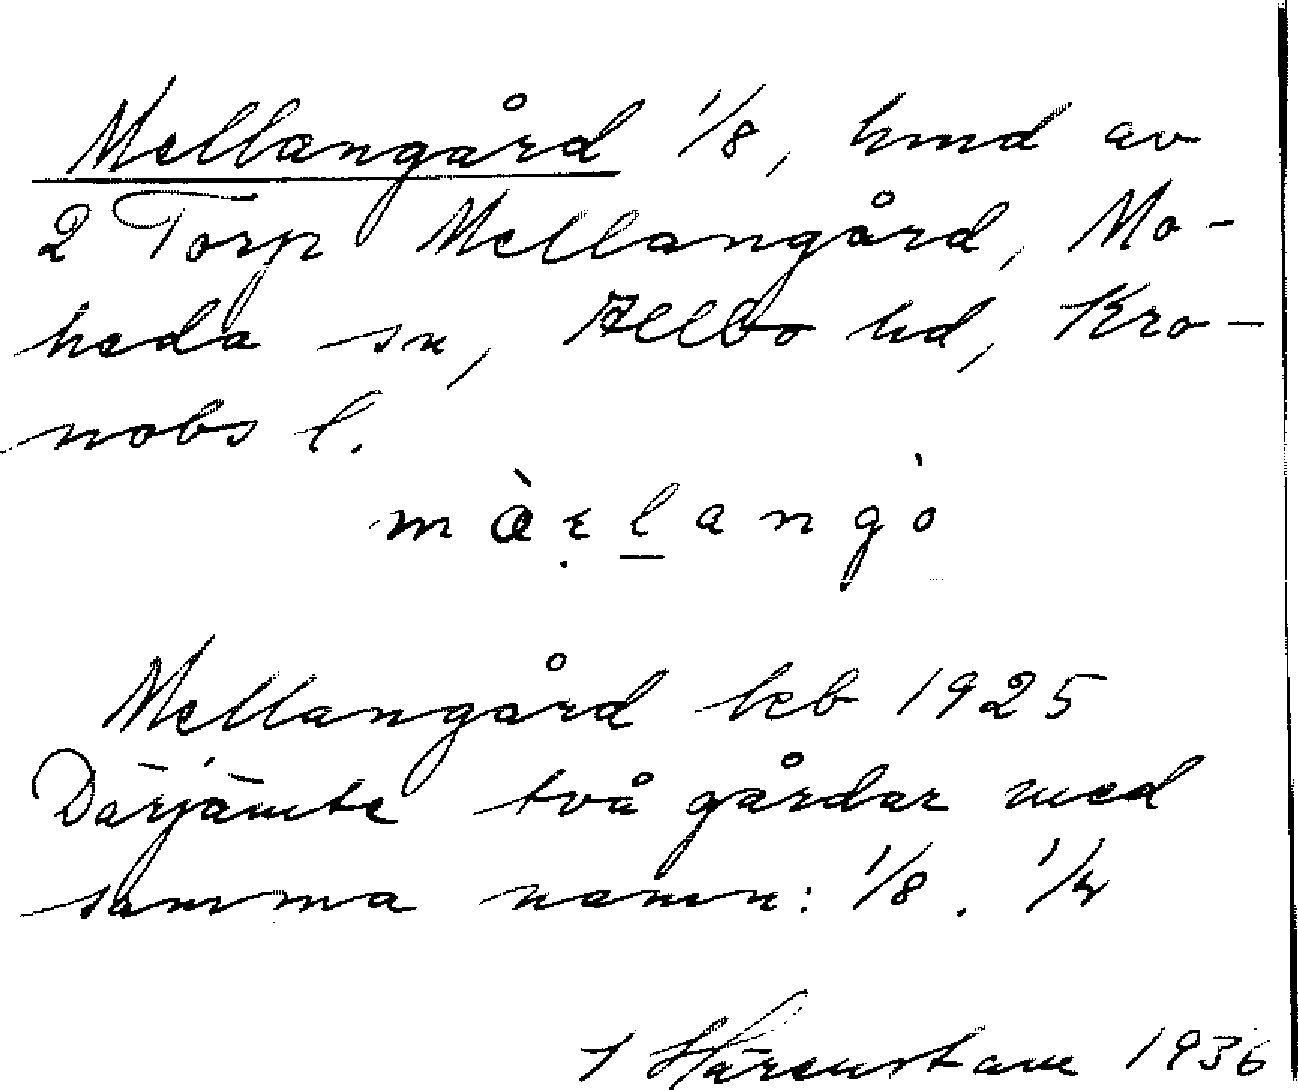 Mellangård 1/8, hmd av
2 Torp Mellangård, Mo-
heda sn, Allbo hd, Kro-
nobs l.
màɛ̣l̲angò
Mellangård keb 1925
Därjämte två gårdar med
samma namn: 1/8. 1/4
J Härenstam 1936